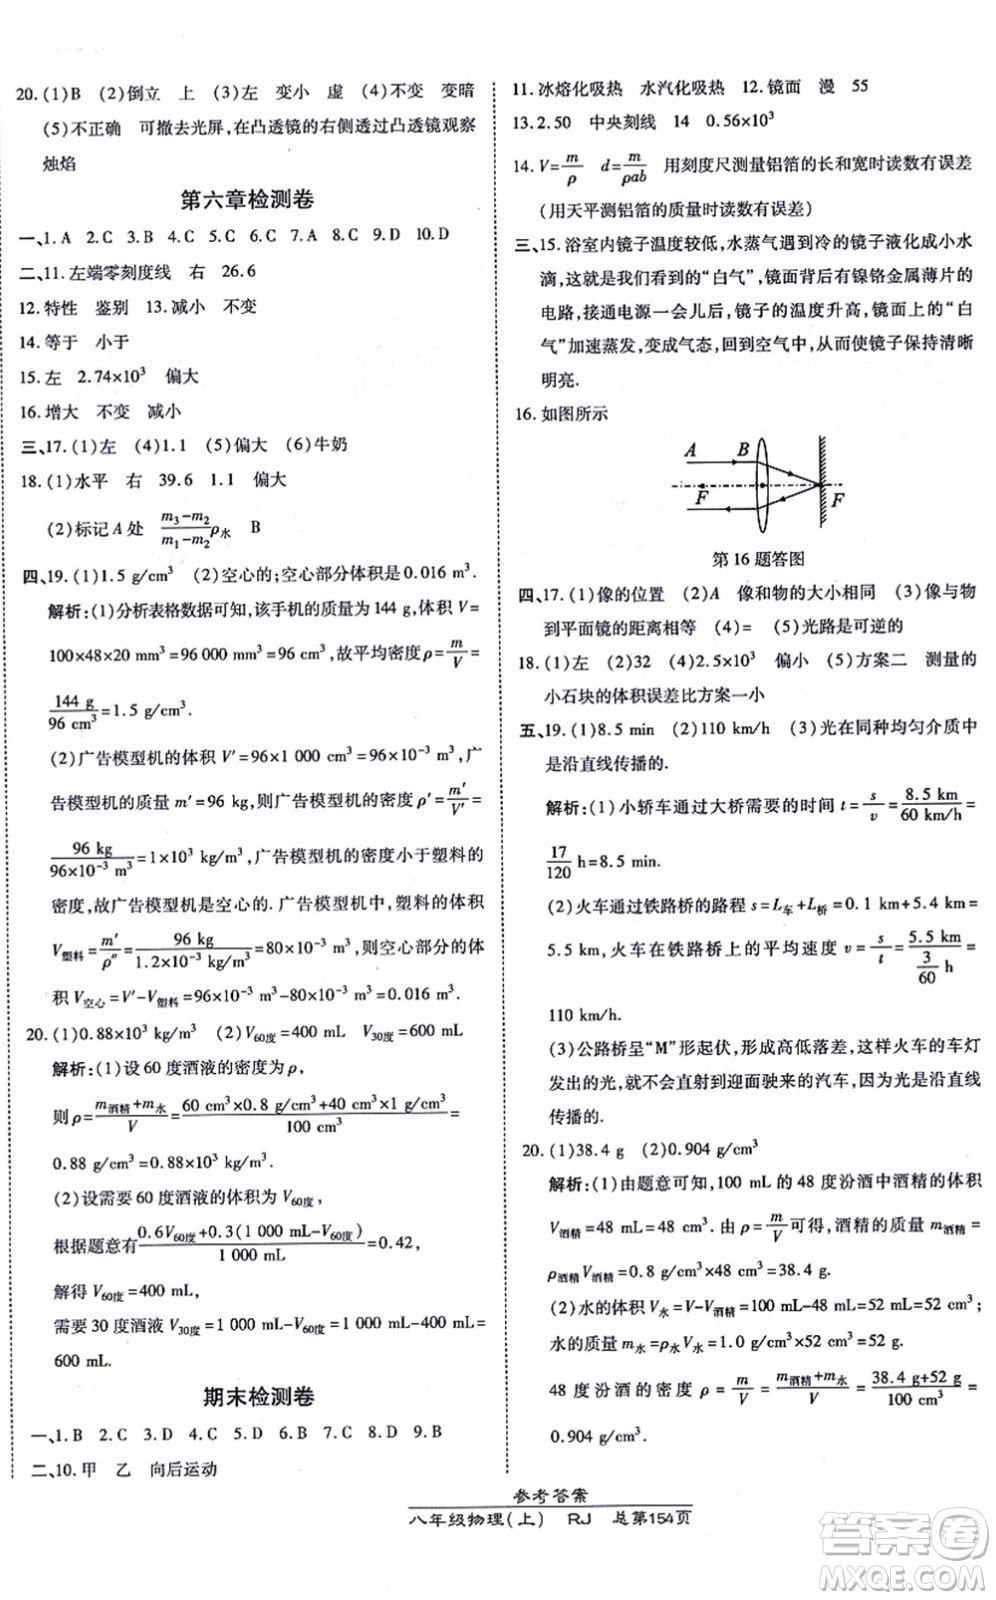 20.(1)B (2)倒立 上 (3)左 变小 虚 (4)不变 变暗
(5)不正确 可撤去光屏,在凸透镜的右侧透过凸透镜观察
烛焰
第六章检测卷
一、1.A 2.C 3.B 4.C 5.C 6.B 7.D 8.C 9.D 10.D
二、11.左端零刻度线 右 26.6
12.特性 鉴别 13.减小 不变
14.等于 小于
15.左 2.74×10³ 偏大
16.增大 不变 减小
三、17.(1)左 (4)1.1 (5)偏大 (6)牛奶
18.(1)水平 右 39.6 1.1 偏大
(2)标记A处 (m₃-m₂)/(m₁-m₂)ρ水 B
四、19.(1)1.5 g/cm³ (2)空心的;空心部分体积是0.016 m³.
解析:(1)分析表格数据可知,该手机的质量为144 g,体积V=
100×48×20 mm³=96 000 mm³=96 cm³,故平均密度ρ=m/V=
144 g/96 cm³=1.5 g/cm³.
(2)广告模型机的体积V′=96×1 000 cm³=96×10⁻³ m³,广
告模型机的质量m′=96 kg,则广告模型机的密度ρ′=m′/V′=
96 kg/(96×10⁻³ m³)=1×10³ kg/m³,广告模型机的密度小于塑料的
密度,故广告模型机是空心的.广告模型机中,塑料的体积
V塑料=m′/ρ″=96 kg/(1.2×10⁻³ m³)=80×10⁻³ m³,则空心部分的体
积V空心=V′-V塑料=96×10⁻³ m³-80×10⁻³ m³=0.016 m³.
20.(1)0.88×10³ kg/m³ (2)V60度=400 mL V30度=600 mL
解析:(1)设60度酒液的密度为ρ,
则ρ=(m酒精+m水)/V=(60 cm³×0.8 g/cm³+40 cm³×1 g/cm³)/100 cm³=
0.88 g/cm³=0.88×10³ kg/m³.
(2)设需要60度酒液的体积为V60度,
根据题意有(0.6V60度+0.3(1 000 mL-V60度))/1 000 mL=0.42,
解得V60度=400 mL,
需要30度酒液V30度=1 000 mL-V60度=1 000 mL-400 mL=
600 mL.
期末检测卷
一、1.B 2.C 3.D 4.C 5.D 6.D 7.D 8.D 9.B
二、10.甲 乙 向后运动
11.冰熔化吸热 水汽化吸热 12.镜面 漫 55
13.2.50 中央刻线 14 0.56×10³
14.V=m/ρ d=m/ρab 用刻度尺测量铝箔的长和宽时读数有误差
(用天平测铝箔的质量时读数有误差)
三、15.浴室内镜子温度较低,水蒸气遇到冷的镜子液化成小水
滴,这就是我们看到的“白气”,镜面背后有镍铬金属薄片的
电路,接通电源一会儿后,镜子的温度升高,镜面上的“白
气”加速蒸发,变成气态,回到空气中,所以使镜子保持清晰
明亮.
16.如图所示
A B
F F
第16题答图
四、17.(1)像的位置 (2)A 像和物的大小相同 (3)像与物
到平面镜的距离相等 (4)= (5)光路是可逆的
18.(1)左 (2)32 (4)2.5×10³ 偏小 (5)方案二 测量的
小石块的体积误差比方案一小
五、19.(1)8.5 min (2)110 km/h (3)光在同种均匀介质中
是沿直线传播的.
解析:(1)小轿车通过大桥需要的时间t=s/v=8.5 km/(60 km/h)=
17/120 h=8.5 min.
(2)火车通过铁路桥的路程s=L车+L桥=0.1 km+5.4 km=
5.5 km,火车在铁路桥上的平均速度v=s/t=5.5 km/(3/60 h)=
110 km/h.
(3)公路桥呈“M”形起伏,形成高低落差,这样火车的车灯
发出的光,就不会直射到迎面驶来的汽车,因为光是沿直线
传播的.
20.(1)38.4 g (2)0.904 g/cm³
解析:(1)由题意可知,100 mL的48度汾酒中酒精的体积
V酒精=48 mL=48 cm³.由ρ=m/V可得,酒精的质量m酒精=
ρ酒精V酒精=0.8 g/cm³×48 cm³=38.4 g.
(2)水的体积V水=V-V酒精=100 mL-48 mL=52 mL=52 cm³;
水的质量m水=ρ水V水=1.0 g/cm³×52 cm³=52 g.
48度汾酒的密度ρ=m/V=(m酒精+m水)/V=(38.4 g+52 g)/100 cm³=
0.904 g/cm³.
参考答案
八年级物理(上) RJ 总第154页
答案圈
MXQE.COM